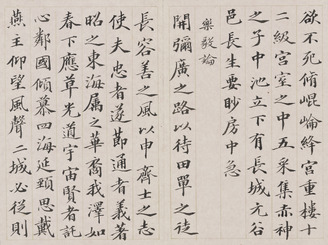 欲不死脩崐崘絳宮重樓十
二級宮室之中五采集赤神
之子中池立下有長城元谷
邑長生要眇房中急
樂毅論
開彌廣之路以待田單之徒
長容善之風以申齊士之志
使夫忠者遂節通者義著
昭之東海屬之華裔我澤如
春下應草光道宇宙賢者託
心鄰國傾慕四海延頸思戴
燕主仰望風聲二城必從則